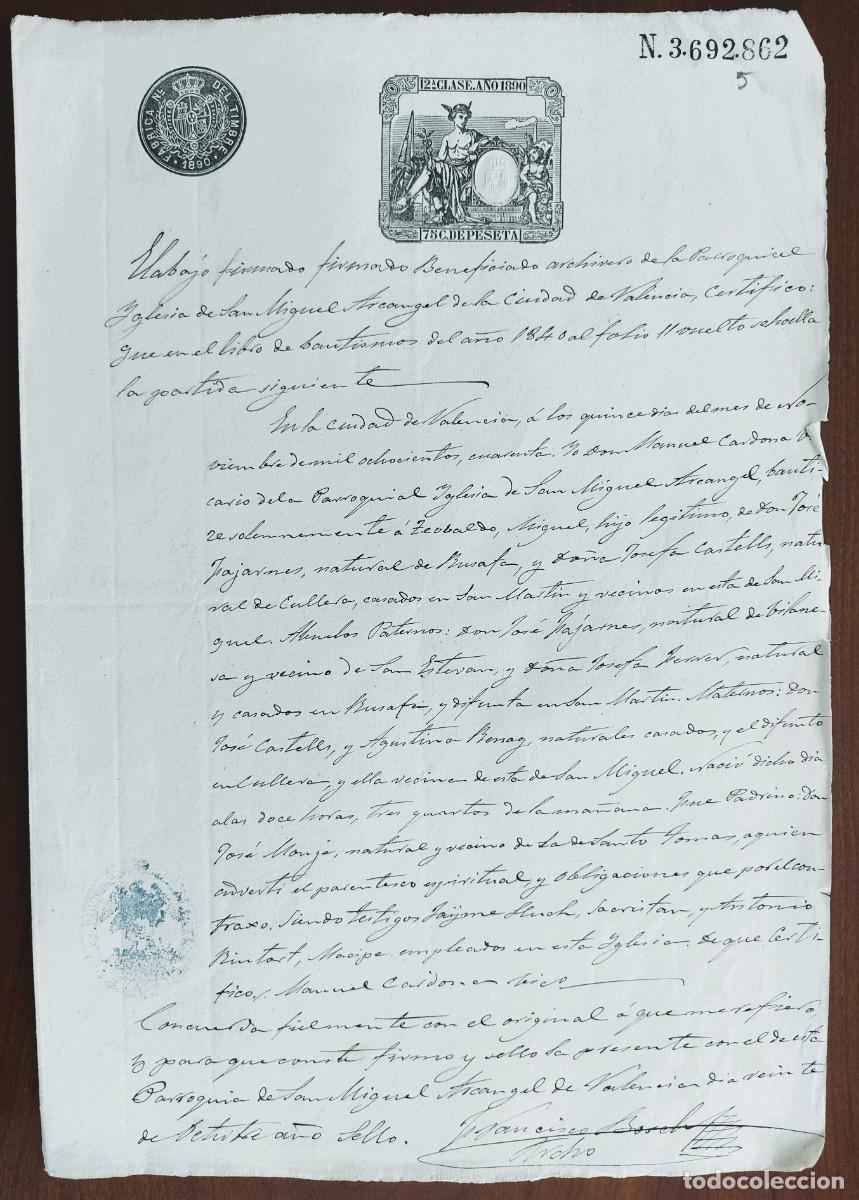 N. 3.692.862
5
FABRICA NL. DEL TIMBRE
1890
12ª CLASE. AÑO 1890
75 C. DE PESETA
El abajo firmado firmado Beneficiado archivero de la Parroquial
Yglesia de San Miguel Arcangel de la Ciudad de Valencia, Certifico:
Que en el libro de bautismos del año 1840 al folio 11 vuelto se halla
la partida siguiente
En la Ciudad de Valencia, á los quince dias del mes de No-
viembre de mil ochocientos, cuarenta. Yo Don Manuel Cardona Vi-
cario de la Parroquial Yglesia de San Miguel Arcangel, bauti-
ze solemnemente á Zeobaldo, Miguel, hijo legitimo, de Don José
Pajarnes, natural de Rusafa, y Doña Josefa Castells, natu-
ral de Cullera, casados en San Martin y vecinos en esta de San Mi-
guel. Abuelos Paternos: Don José Pajarnes, natural de
y vecino de San Estevan, y Doña Josefa Ferrer, natural
y casados en Rusafa, y difunta en San Martin. Maternos: Don
José Castells, y Agustina naturales casados, y el difunto
en Cullera, y ella vecina de esta de San Miguel. Nació dicho dia
a las doce horas, tres quartos de la mañana. Fue Padrino: Don
José Monje, natural y vecino de La de Santo Tomas, a quien
adverti el parentesco espiritual, y obligaciones que por el con-
traxo. Siendo testigos Jayme Lluch, Sacristan, y Antonio
empleados en esta Yglesia. De que Certi-
fico,. Manuel Cardona Vico
Concuerda fielmente con el original á que me refiero,
y para que conste firmo y sello la presente con el de esta
Parroquia de San Miguel Arcangel de Valencia dia veinte
de Octubre año Sello.
Francisco Bosch
Archo
todocoleccion
todocoleccion.net